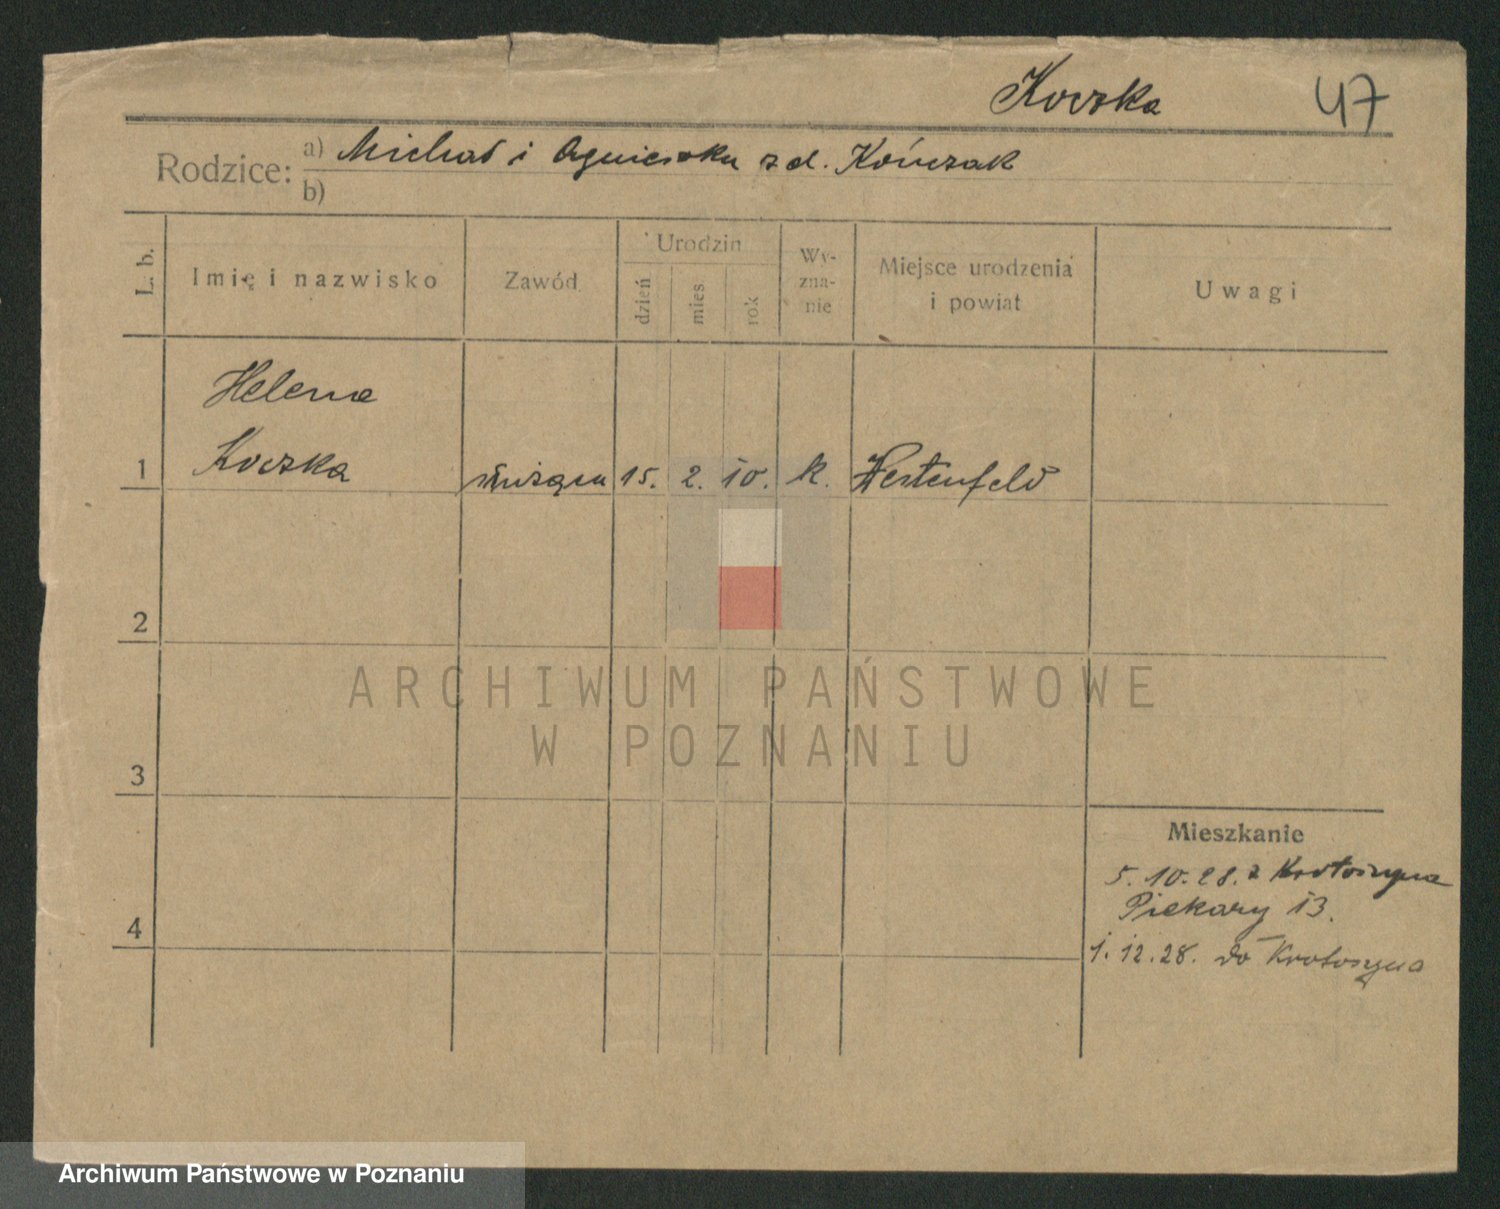 Koczka 47
Rodzice: a) Michał i Agnieszka z d. Kończak
b)
L. b. Imię i nazwisko Zawód Urodzin dzień mies rok Wy-zna-nie Miejsce urodzenia i powiat Uwagi
Helena
1 Koczka służąca 15. 2. 10. k. Westenfeld
2
3
Mieszkanie
5. 10. 28. z Krotoszyna
4 Piekary 13.
1. 12. 28. do Krotoszyna
ARCHIWUM PAŃSTWOWE
W POZNANIU
Archiwum Państwowe w Poznaniu